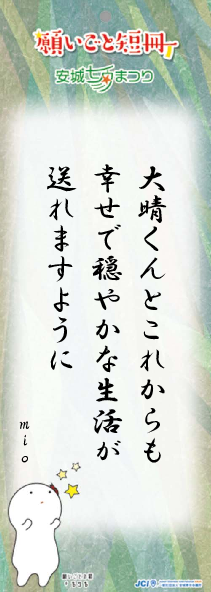 願いごと短冊
安城七夕まつり
大晴くんとこれからも
幸せで穏やかな生活が
送れますように
mio
JCI